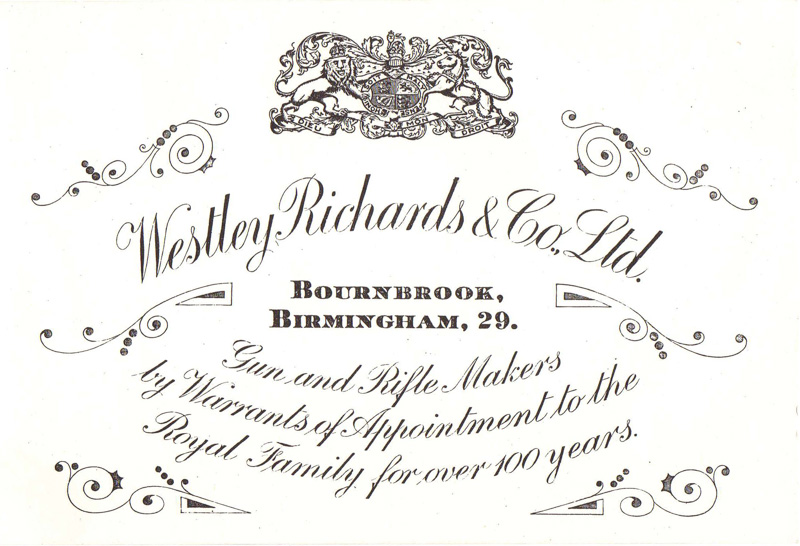 DIEU ET MON DROIT
Westley Richards & Co., Ltd.
BOURNBROOK,
BIRMINGHAM, 29.
Gun and Rifle Makers
by Warrants of Appointment to the
Royal Family for over 100 years.